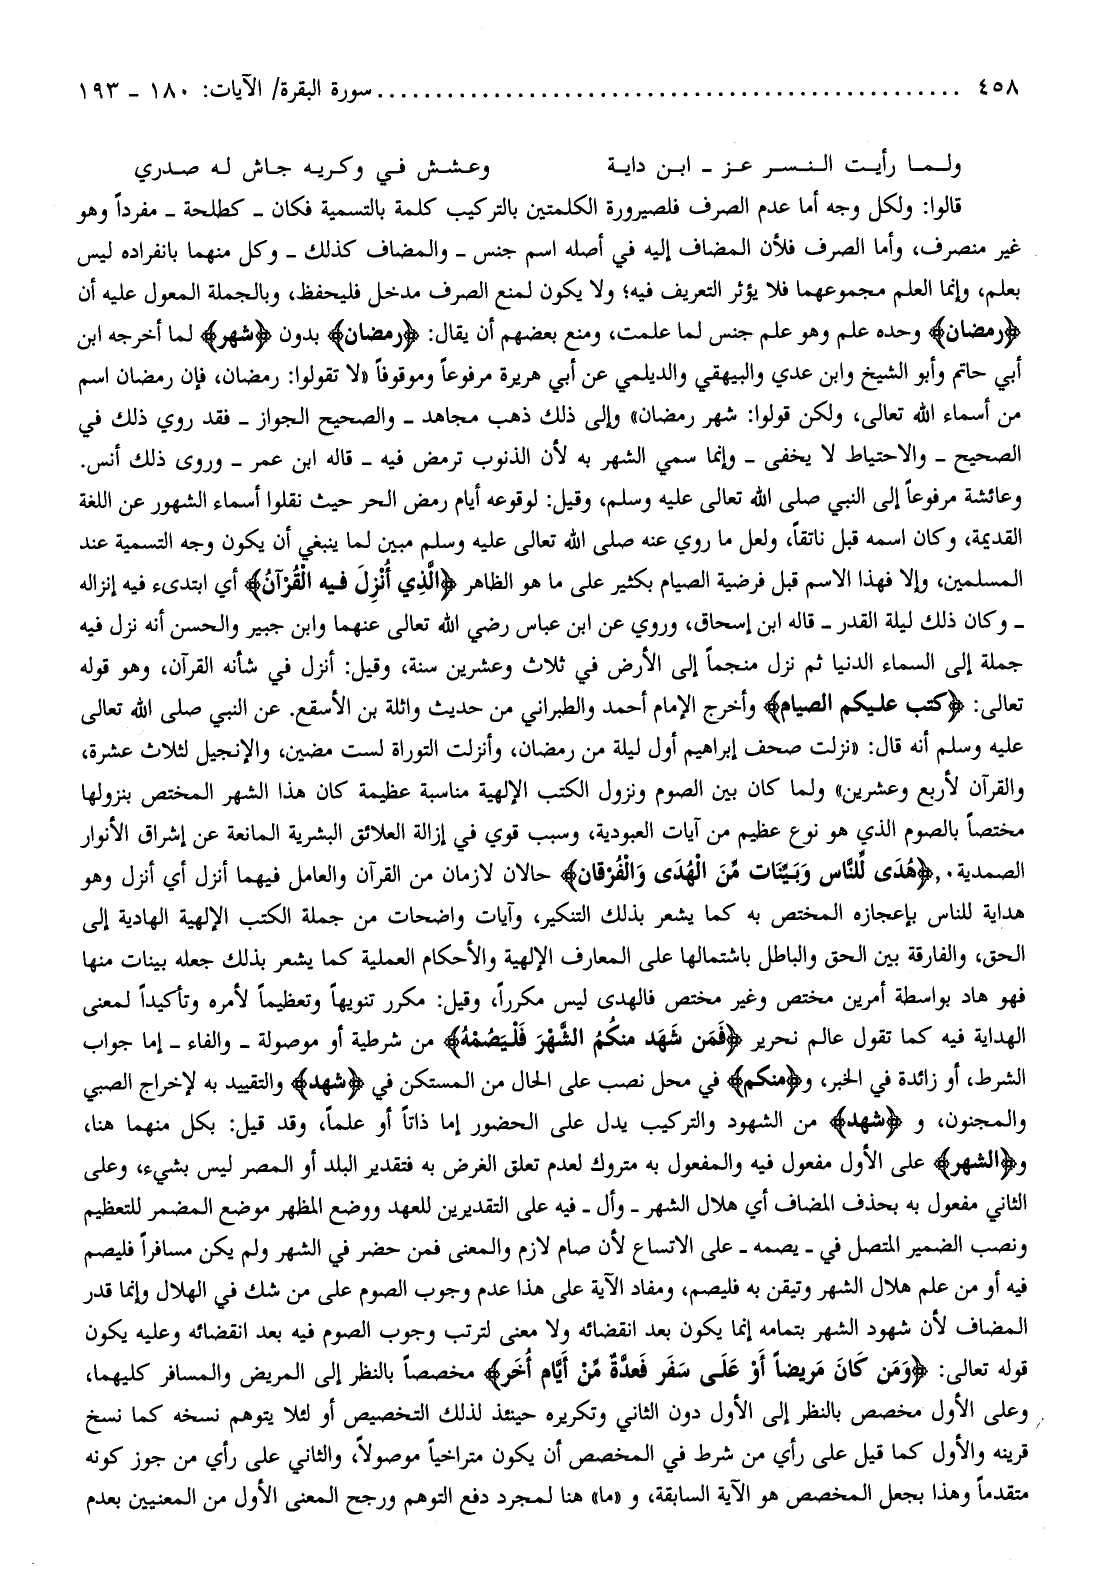 ٤٥٨ ........................................ سورة البقرة/ الآيات: ١٨٠ ـ ١٩٣
ولما رأيت النسر عز ـ ابن داية وعشش في وكريه جاش له صدري
قالوا: ولكل وجه أما عدم الصرف فلصيرورة الكلمتين بالتركيب كلمة بالتسمية فكان ـ كطلحة ـ مفرداً وهو
غير منصرف، وأما الصرف فلأن المضاف إليه في أصله اسم جنس ـ والمضاف كذلك ـ وكل منهما بانفراده ليس
بعلم، وإنما العلم مجموعهما فلا يؤثر التعريف فيه؛ ولا يكون لمنع الصرف مدخل فليحفظ، وبالجملة المعول عليه أن
﴿رمضان﴾ وحده علم وهو علم جنس لما علمت، ومنع بعضهم أن يقال: ﴿رمضان﴾ بدون ﴿شهر﴾ لما أخرجه ابن
أبي حاتم وأبو الشيخ وابن عدي والبيهقي والديلمي عن أبي هريرة مرفوعاً وموقوفاً «لا تقولوا: رمضان، فإن رمضان اسم
من أسماء الله تعالى، ولكن قولوا: شهر رمضان» وإلى ذلك ذهب مجاهد ـ والصحيح الجواز ـ فقد روي ذلك في
الصحيح ـ والاحتياط لا يخفى ـ وإنما سمي الشهر به لأن الذنوب ترمض فيه ـ قاله ابن عمر ـ وروى ذلك أنس.
وعائشة مرفوعاً إلى النبي صلى الله تعالى عليه وسلم، وقيل: لوقوعه أيام رمض الحر حيث نقلوا أسماء الشهور عن اللغة
القديمة، وكان اسمه قبل ناتقاً، ولعل ما روي عنه صلى الله تعالى عليه وسلم مبين لما ينبغي أن يكون وجه التسمية عند
المسلمين، وإلا فهذا الاسم قبل فرضية الصيام بكثير على ما هو الظاهر ﴿الَّذِي أُنْزِلَ فيه الْقُرْآنُ﴾ أي ابتدىء فيه إنزاله
ـ وكان ذلك ليلة القدر ـ قاله ابن إسحاق، وروي عن ابن عباس رضي الله تعالى عنهما وابن جبير والحسن أنه نزل فيه
جملة إلى السماء الدنيا ثم نزل منجماً إلى الأرض في ثلاث وعشرين سنة، وقيل: أنزل في شأنه القرآن، وهو قوله
تعالى: ﴿كتب عليكم الصيام﴾ وأخرج الإمام أحمد والطبراني من حديث واثلة بن الأسقع. عن النبي صلى الله تعالى
عليه وسلم أنه قال: «نزلت صحف إبراهيم أول ليلة من رمضان، وأنزلت التوراة لست مضين، والإنجيل لثلاث عشرة،
والقرآن لأربع وعشرين» ولما كان بين الصوم ونزول الكتب الإلهية مناسبة عظيمة كان هذا الشهر المختص بنزولها
مختصاً بالصوم الذي هو نوع عظيم من آيات العبودية، وسبب قوي في إزالة العلائق البشرية المانعة عن إشراق الأنوار
الصمدية.، ﴿هُدَى لِّلنَّاس وَبَيِّنَات مِّنَ الْهُدَى وَالْفُرْقان﴾ حالان لازمان من القرآن والعامل فيهما أنزل أي أنزل وهو
هداية للناس بإعجازه المختص به كما يشعر بذلك التنكير، وآيات واضحات من جملة الكتب الإلهية الهادية إلى
الحق، والفارقة بين الحق والباطل باشتمالها على المعارف الإلهية والأحكام العملية كما يشعر بذلك جعله بينات منها
فهو هاد بواسطة أمرين مختص وغير مختص فالهدى ليس مكرراً، وقيل: مكرر تنويهاً وتعظيماً لأمره وتأكيداً لمعنى
الهداية فيه كما تقول عالم نحرير ﴿فَمَن شَهَد منكُمُ الشَّهْرَ فَلْيَصُمْهُ﴾ من شرطية أو موصولة ـ والفاء ـ إما جواب
الشرط، أو زائدة في الخبر، و﴿منكم﴾ في محل نصب على الحال من المستكن في ﴿شهد﴾ والتقييد به لإخراج الصبي
والمجنون، و ﴿شهد﴾ من الشهود والتركيب يدل على الحضور إما ذاتاً أو علماً، وقد قيل: بكل منهما هنا،
و﴿الشهر﴾ على الأول مفعول فيه والمفعول به متروك لعدم تعلق الغرض به فتقدير البلد أو المصر ليس بشيء، وعلى
الثاني مفعول به بحذف المضاف أي هلال الشهر ـ وأل ـ فيه على التقديرين للعهد ووضع المظهر موضع المضمر للتعظيم
ونصب الضمير المتصل في ـ يصمه ـ على الاتساع لأن صام لازم والمعنى فمن حضر في الشهر ولم يكن مسافراً فليصم
فيه أو من علم هلال الشهر وتيقن به فليصم، ومفاد الآية على هذا عدم وجوب الصوم على من شك في الهلال وإنما قدر
المضاف لأن شهود الشهر بتمامه إنما يكون بعد انقضائه ولا معنى لترتب وجوب الصوم فيه بعد انقضائه وعليه يكون
قوله تعالى: ﴿وَمَن كَانَ مَريضاً أَوْ عَلَى سَفَر فَعدَّةٌ مِّنْ أَيَّام أُخَر﴾ مخصصاً بالنظر إلى المريض والمسافر كليهما،
وعلى الأول مخصص بالنظر إلى الأول دون الثاني وتكريره حينئذ لذلك التخصيص أو لئلا يتوهم نسخه كما نسخ
قرينه والأول كما قيل على رأي من شرط في المخصص أن يكون متراخياً موصولاً، والثاني على رأي من جوز كونه
متقدماً وهذا بجعل المخصص هو الآية السابقة، و «ما» هنا لمجرد دفع التوهم ورجح المعنى الأول من المعنيين بعدم